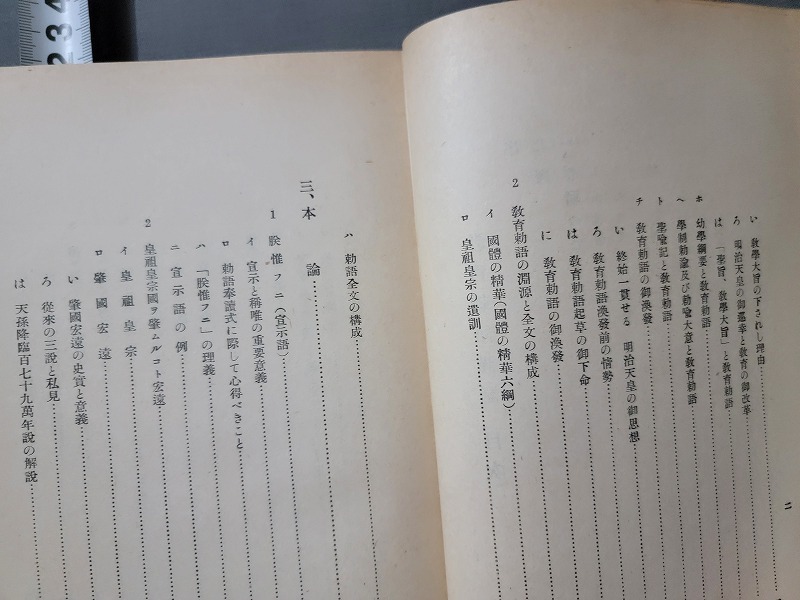 二
い 教學大旨の下されし理由
ろ 明治天皇の御巡幸と教育の御改革
は 「聖旨、教學大旨」と教育勅語
ホ 幼學綱要と教育勅語
ヘ 學制勅諭及び勅喩大意と教育勅語
ト 聖喩記と教育勅語
チ 教育勅語の御渙發
い 終始一貫せる 明治天皇の御思想
ろ 教育勅語渙發前の情勢
は 教育勅語起草の御下命
に 教育勅語の御渙發
2 教育勅語の淵源と全文の構成
イ 國體の精華(國體の精華六綱)
ロ 皇祖皇宗の遺訓
ハ 勅語全文の構成
三、本 論
1 朕惟フニ(宣示語)
イ 宣示と稱唯の重要意義
ロ 勅語奉讀式に際して心得べきこと
ハ 「朕惟フニ」の理義
ニ 宣示語の例
2 皇祖皇宗國ヲ肇ムルコト宏遠
イ 皇祖皇宗
ロ 肇國宏遠
い 肇國宏遠の史實と意義
ろ 從來の三説と私見
は 天孫降臨百七十九萬年説の解説
234